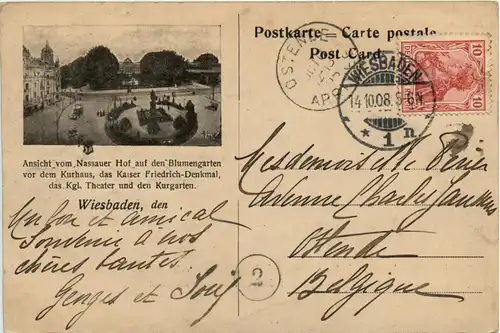 Postkarte = Carte postale
Post Card.
OSTENDE
WIESBADEN
14.10.08. 5-6N
* 1 n
10 10
Ansicht vom Nassauer Hof auf den Blumengarten
vor dem Kurhaus, das Kaiser Friedrich-Denkmal,
das Kgl. Theater und den Kurgarten.
Wiesbaden, den
Un bon et amical
Souvenir à nos
chères tantes.
Georges et
Mesdemoiselles de
Avenue Charles Janssens
Ostende
Belgique
2